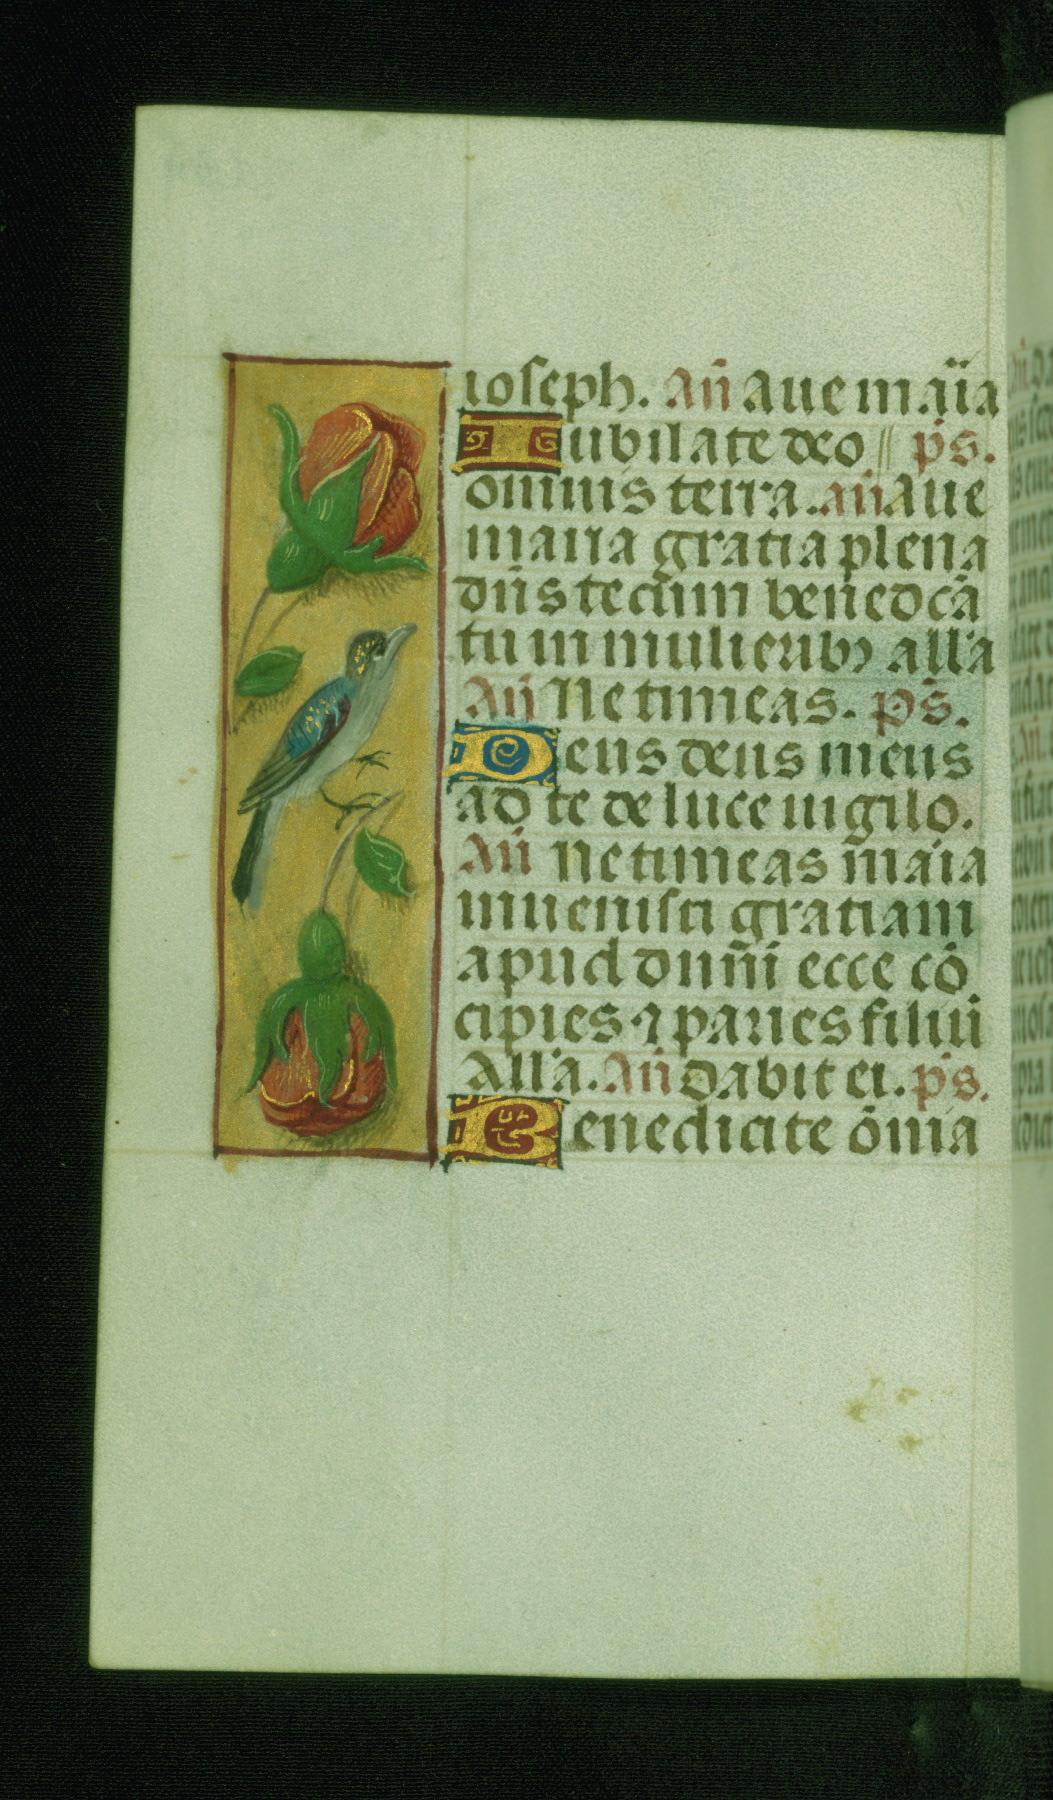 ioseph. Añ aue maͥa
Iubilate deo ps̄.
omnis terra. añ. Aue
maria gratia plena
dn̄s tecum benedcā
tu in mulieribꝫ all'a
Añ Ne timeas. Ps̄.
Deus deus meus
ad te de luce uigilo.
Añ Ne timeas maͥa
inuenisti gratiam
apud dominū ecce cō
cipies ⁊ paries filiū
All'a. Añ Dabit ei. ps̄.
Benedicite ōnia